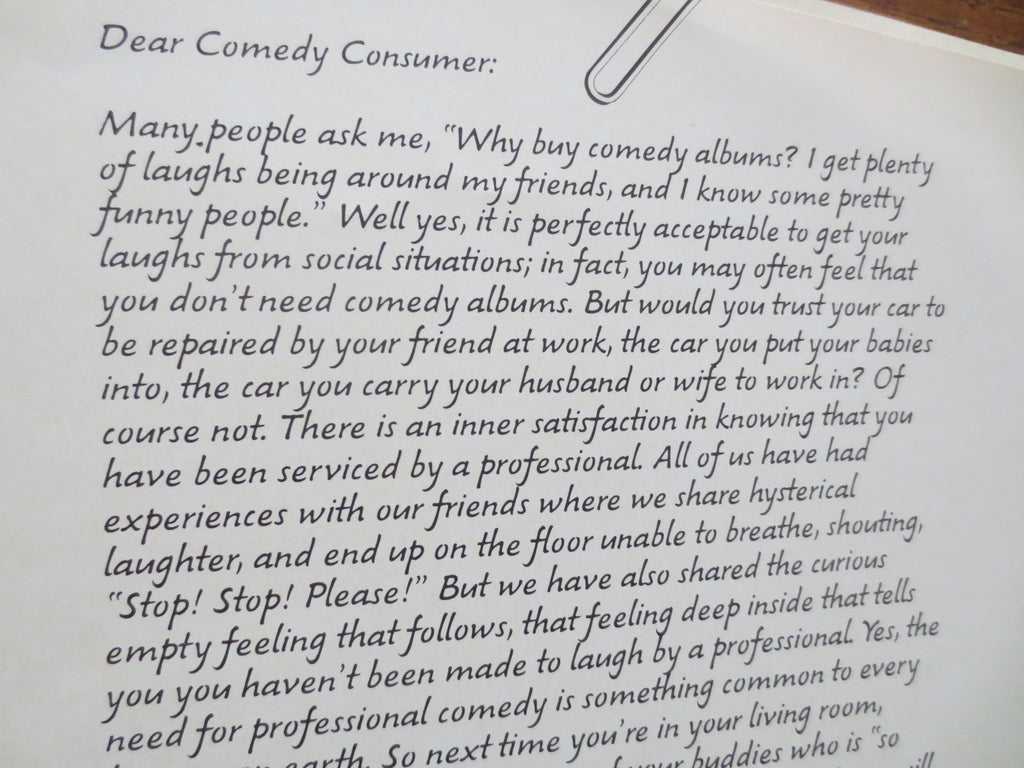 Dear Comedy Consumer:
Many people ask me, "Why buy comedy albums? I get plenty
of laughs being around my friends, and I know some pretty
funny people." Well yes, it is perfectly acceptable to get your
laughs from social situations; in fact, you may often feel that
you don't need comedy albums. But would you trust your car to
be repaired by your friend at work, the car you put your babies
into, the car you carry your husband or wife to work in? Of
course not. There is an inner satisfaction in knowing that you
have been serviced by a professional. All of us have had
experiences with our friends where we share hysterical
laughter, and end up on the floor unable to breathe, shouting,
"Stop! Stop! Please!" But we have also shared the curious
empty feeling that follows, that feeling deep inside that tells
you you haven't been made to laugh by a professional. Yes, the
need for professional comedy is something common to every
earth. So next time you're in your living room,
your buddies who is "so